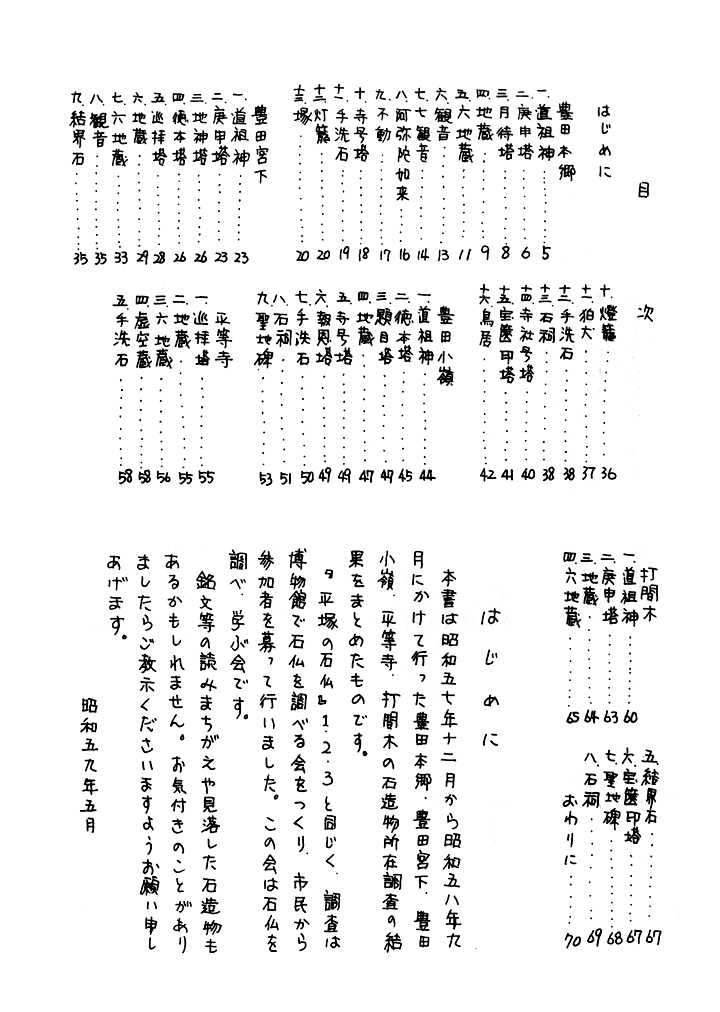 目次
はじめに
豊田本郷
一、道祖神………5
二、庚申塔………6
三、月待塔………8
四、地蔵………9
五、六地蔵………11
六、観音………13
七、七観音………14
八、阿弥陀如来………16
九、不動………17
十、寺号塔………18
十一、手洗石………19
十二、灯籠………20
十三、塚………20
豊田宮下
一、道祖神………23
二、庚申塔………23
三、地神塔………26
四、徳本塔………26
五、巡拝塔………28
六、地蔵………29
七、六地蔵………33
八、観音………35
九、結界石………35
十、燈籠………36
十一、狛犬………37
十二、手洗石………38
十三、石祠………38
十四、寺社号塔………40
十五、宝篋印塔………41
十六、鳥居………42
豊田小嶺
一、道祖神………44
二、徳本塔………45
三、題目塔………47
四、地蔵………47
五、寺号塔………49
六、報恩塔………49
七、手洗石………50
八、石祠………51
九、聖地碑………53
平等寺
一、巡拝塔………55
二、地蔵………55
三、六地蔵………56
四、虚空蔵………58
五、手洗石………58
打間木
一、道祖神………60
二、庚申塔………63
三、地蔵………64
四、六地蔵………65
五、結界石………67
六、宝篋印塔………67
七、聖地碑………68
八、石祠………69
おわりに………70
はじめに
本書は昭和五七年十二月から昭和五八年九
月にかけて行った豊田本郷、豊田宮下、豊田
小嶺、平等寺、打間木の石造物所在調査の結
果をまとめたものです。
『平塚の石仏』1・2・3と同じく、調査は
博物館で石仏を調べる会をつくり、市民から
参加者を募って行いました。この会は石仏を
調べ、学ぶ会です。
銘文等の読みまちがえや見落した石造物も
あるかもしれません。お気付きのことがあり
ましたらご教示くださいますようお願い申し
あげます。
昭和五九年五月